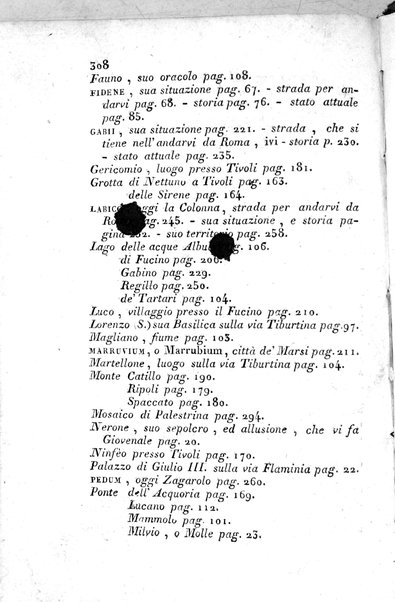 308
Fauno , suo oracolo pag. 108.
FIDENE , sua situazione pag. 67. - strada per an-
darvi pag. 68. - storia pag. 76. - stato attuale
pag. 85.
GABII , sua situazione pag. 221. - strada , che si
tiene nell'andarvi da Roma , ivi - storia p. 230.
- stato attuale pag. 235.
Gericomio , luogo presso Tivoli pag. 181.
Grotta di Nettuno a Tivoli pag. 163.
delle Sirene pag. 164.
oggi la Colonna, strada per andarvi da
pag. 245. - sua situazione , e storia pa-
- suo territorio pag. 258.
Lago delle acque pag. 106.
di Fucino pag.
Gabino pag. 229.
Regillo pag. 250.
de' Tartari pag. 104.
Luco , villaggio presso il Fucino pag. 210.
Lorenzo (S.) sua Basilica sulla via Tiburtina pag. 97.
Magliano , fiume pag. 103.
MARRUVIUM, o Marrubium, città de' Marsi pag. 211.
Martellone, luogo sulla via Tiburtina pag. 104.
Monte Catillo pag. 190.
Ripoli pag. 179.
Spaccato pag. 180.
Mosaico di Palestrina pag. 294.
Nerone , suo sepolcro , ed allusione , che vi fa
Giovenale pag. 20.
Ninfèo presso Tivoli pag. 170.
Palazzo di Giulio III. sulla via Flaminia pag. 22.
PEDUM , oggi Zagarolo pag. 260.
Ponte dell' Acquoria pag. 169.
Lucano pag. 112.
Mammolo pag. 101.
Milvio , o Molle pag. 23.